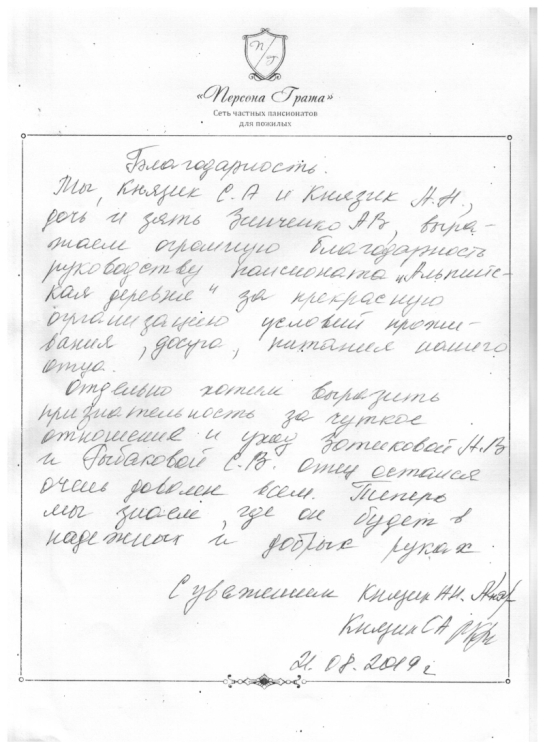 П Г
«Персона Грата»
Сеть частных пансионатов
для пожилых
Благодарность.
Мы, Князик С.А и Князик А.Н.,
дочь и зять Зинченко АВ, выра-
жаем огромную благодарность
руководству пансионата „Альпийс-
кая деревня" за прекрасную
организацию условий прожи-
вания, досуга, питания нашего
отца.
Отдельно хотим выразить
признательность за чуткое
отношение и уход Зотиковой Н.В
и Рыбаковой С.В. Отец остался
очень доволен всем. Теперь
мы знаем, где он будет в
надежных и добрых руках.
С уважением Князик АН.
Князик СА
21.08.2019 г